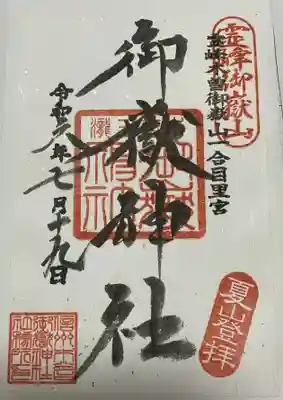 霊峰御嶽山
霊峰木曽御嶽山一合目里宮
御嶽神社
令和六年七月十九日
夏山登拝